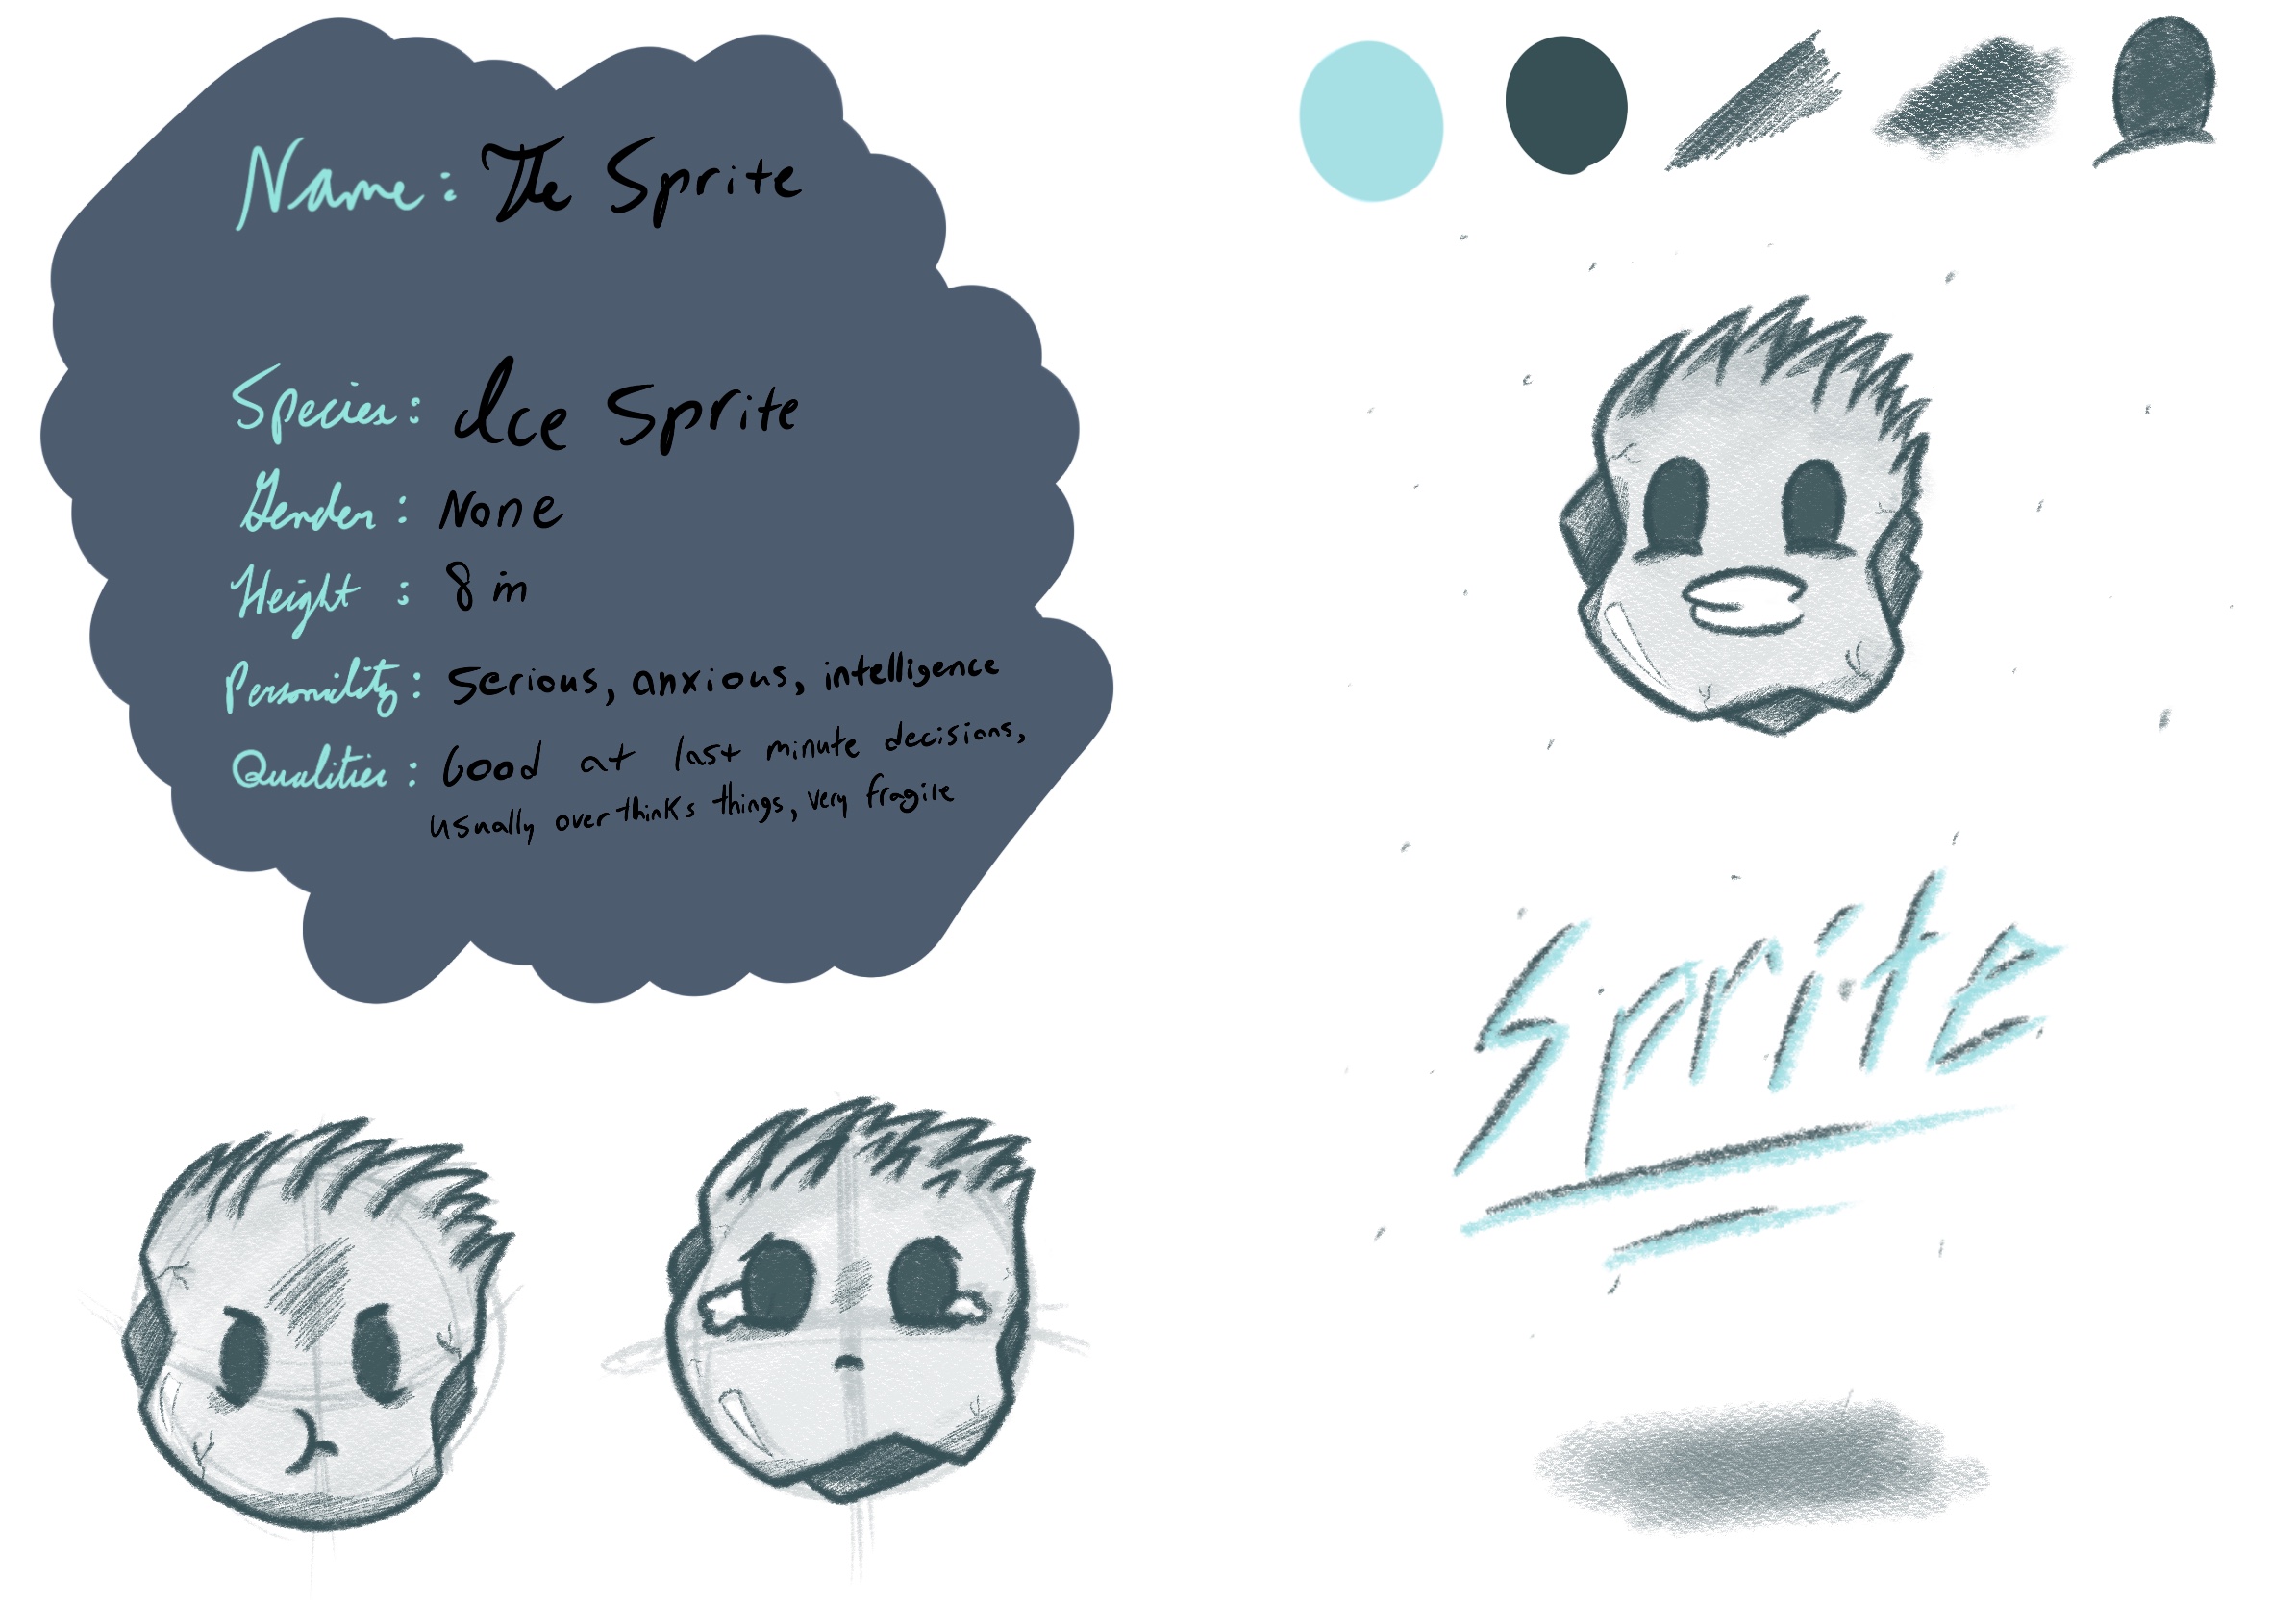 Name: The Sprite
Species: Ice Sprite
Gender: None
Height: 8 in
Personility: Serious, anxious, intelligence
Qualities: Good at last minute decisions,
usually overthinks things, very fragile
Sprite